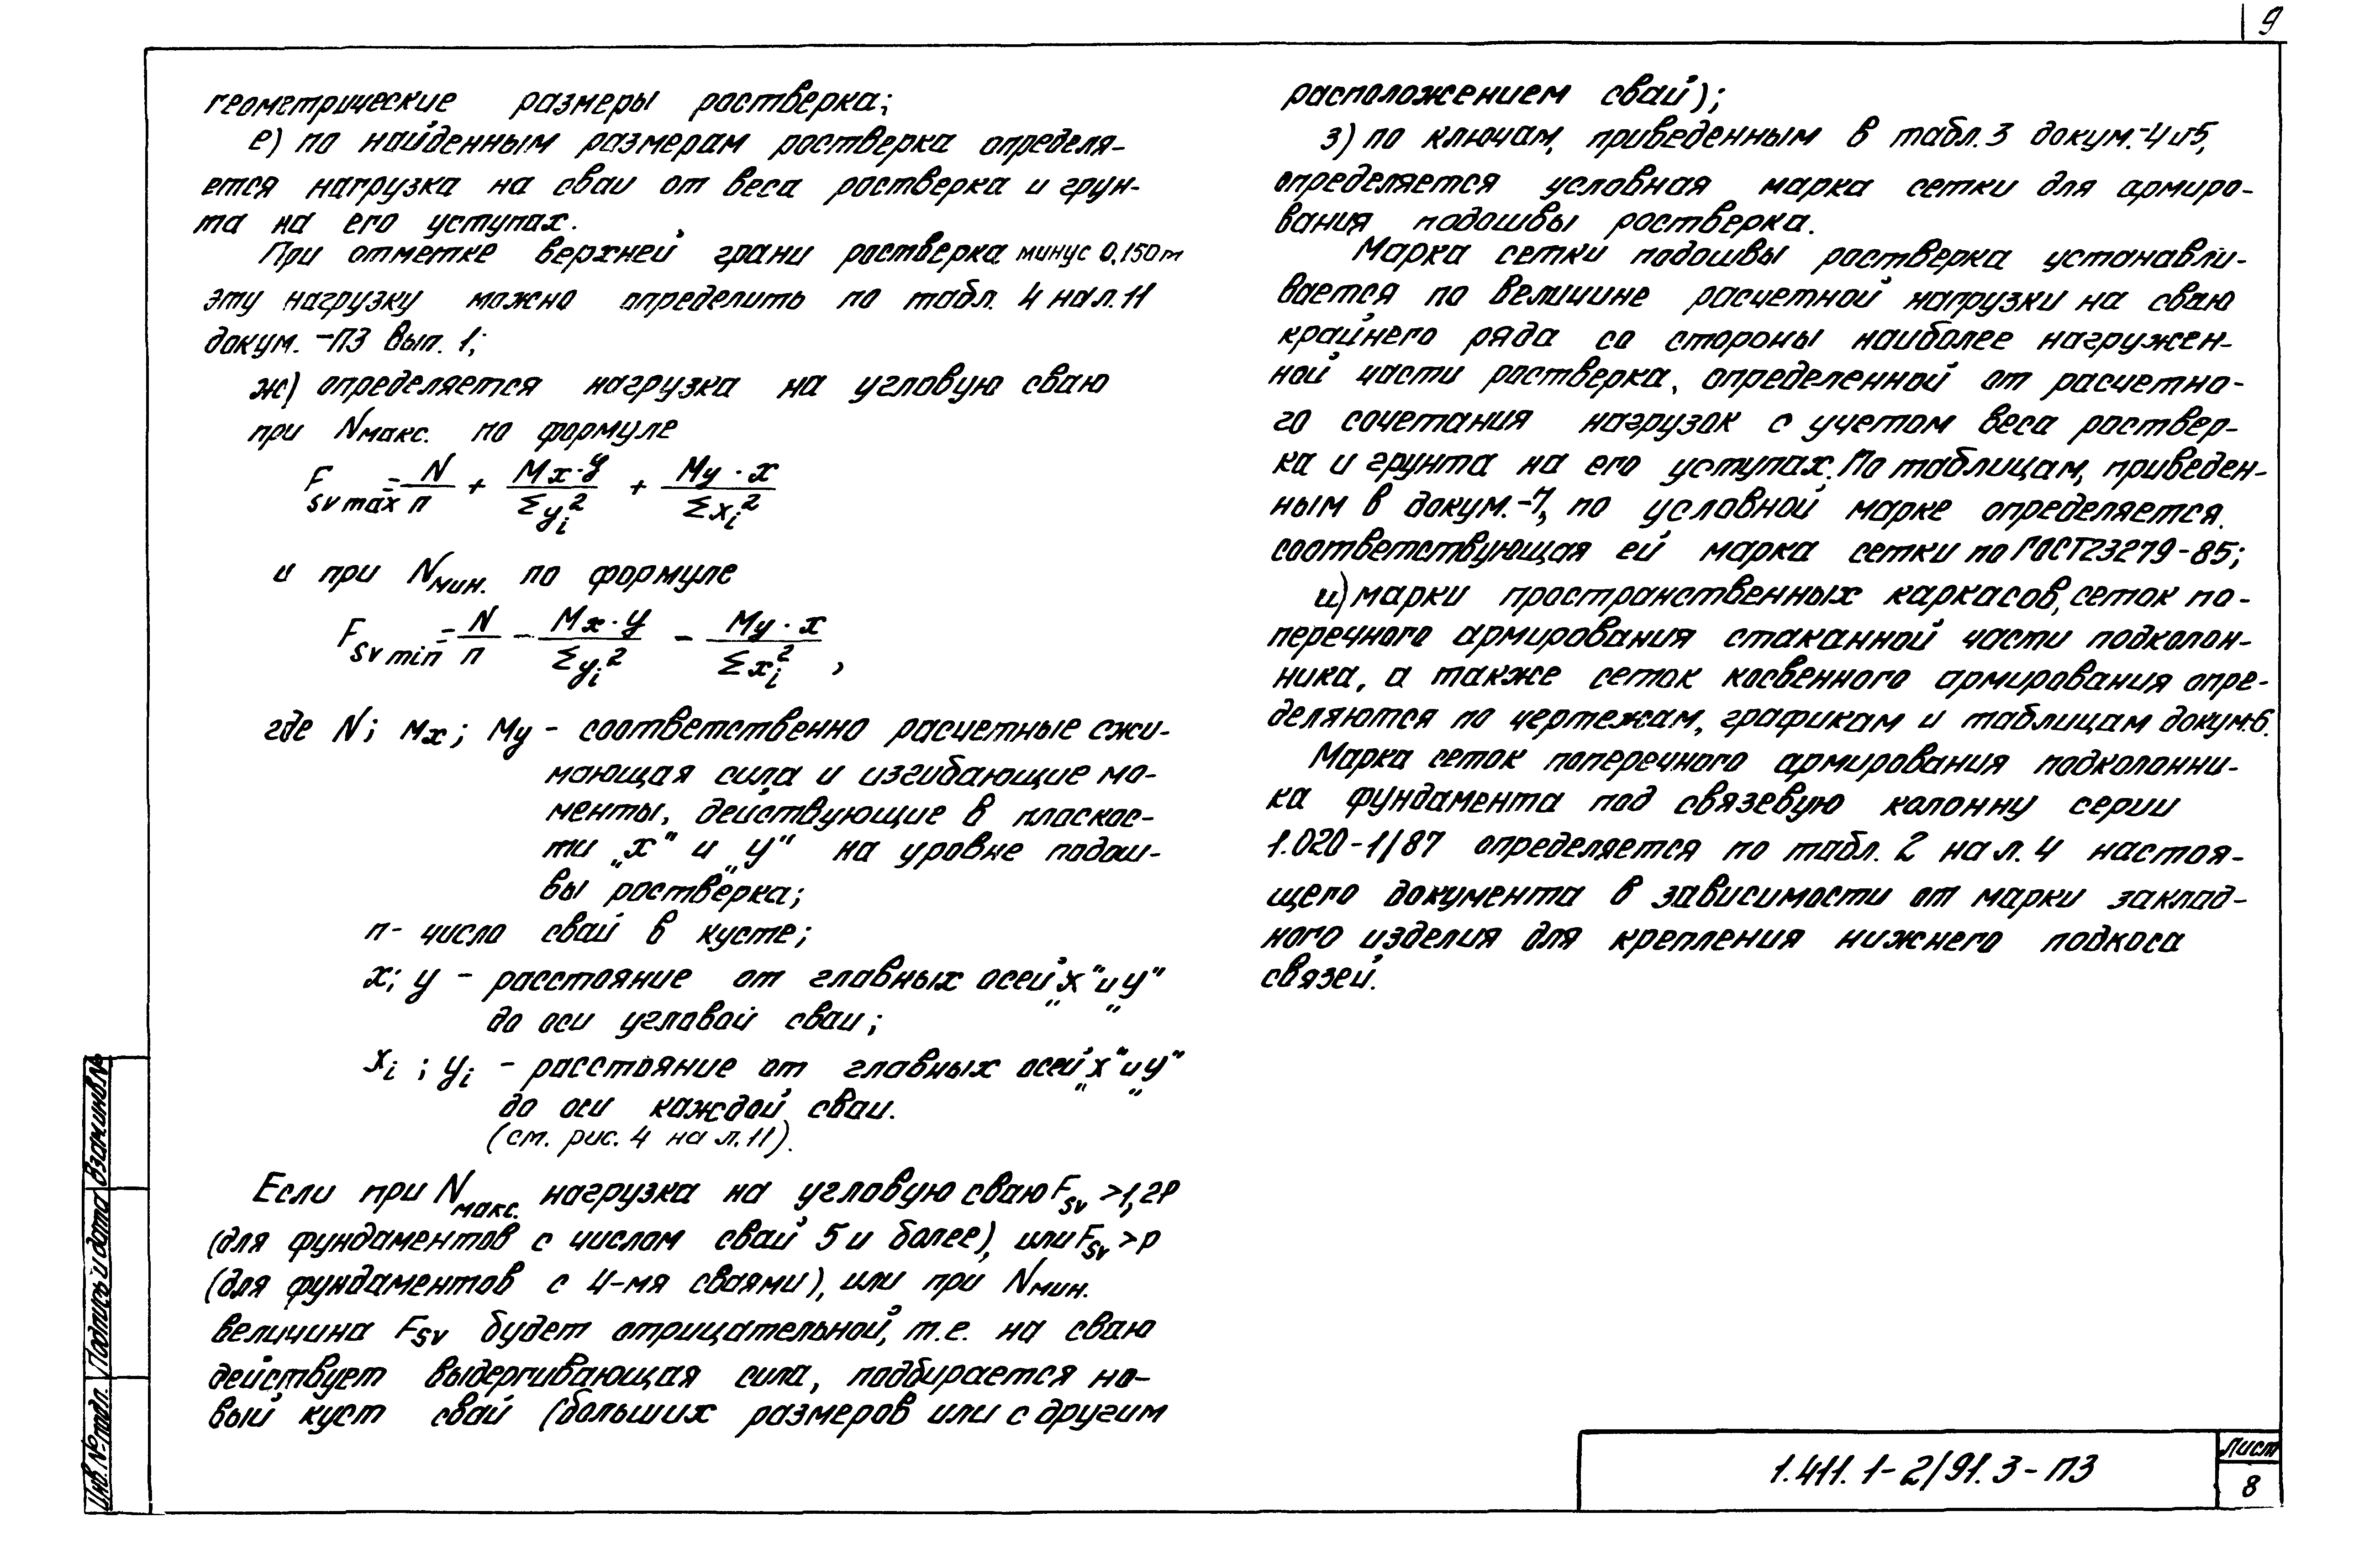 9
геометрические размеры ростверка;
е) по найденным размерам ростверка определя-
ется нагрузка на сваи от веса ростверка и грун-
та на его уступах.
При отметке верхней грани ростверка минус 0,150м
эту нагрузку можно определить по табл. 4 на л. 11
докум. -ПЗ вып. 1;
ж) определяется нагрузка на угловую сваю
при Nмакс. по формуле
F sv max = N/n + Mx·y/Σyi² + My·x/Σxi²
и при Nмин. по формуле
F sv min = N/n - Mx·y/Σyi² - My·x/Σxi²,
где N; Mx; My - соответственно расчетные сжи-
мающая сила и изгибающие мо-
менты, действующие в плоскос-
ти „x" и „y" на уровне подош-
вы ростверка;
n- число свай в кусте;
x; y - расстояние от главных осей „x" и „y"
до оси угловой сваи;
xi; yi - расстояние от главных осей „x" и „y"
до оси каждой сваи.
(см. рис. 4 на л. 11).
Если при Nмакс. нагрузка на угловую сваю Fsv >1,2P
(для фундаментов с числом свай 5 и более), или Fsv >P
(для фундаментов с 4-мя сваями), или при Nмин.
величина Fsv будет отрицательной, т.е. на сваю
действует выдергивающая сила, подбирается но-
вый куст свай (больших размеров или с другим
расположением свай);
з) по ключам, приведенным в табл. 3 докум.-4 и 5,
определяется условная марка сетки для армиро-
вания подошвы ростверка.
Марка сетки подошвы ростверка устанавли-
вается по величине расчетной нагрузки на сваю
крайнего ряда со стороны наиболее нагружен-
ной части ростверка, определенной от расчетно-
го сочетания нагрузок с учетом веса роствер-
ка и грунта на его уступах. По таблицам, приведен-
ным в докум.-7, по условной марке определяется
соответствующая ей марка сетки по ГОСТ 23279-85;
и) марки пространственных каркасов, сеток по-
перечного армирования стаканной части подколон-
ника, а также сеток косвенного армирования опре-
деляются по чертежам, графикам и таблицам докум-6.
Марка сеток поперечного армирования подколонни-
ка фундамента под связевую колонну серии
1.020-1/87 определяется по табл. 2 на л. 4 настоя-
щего документа в зависимости от марки заклад-
ного изделия для крепления нижнего подкоса
связей.
Инв. № подл.
Подпись и дата
Взам инв. №
1.411.1-2/91.3-ПЗ
Лист
8